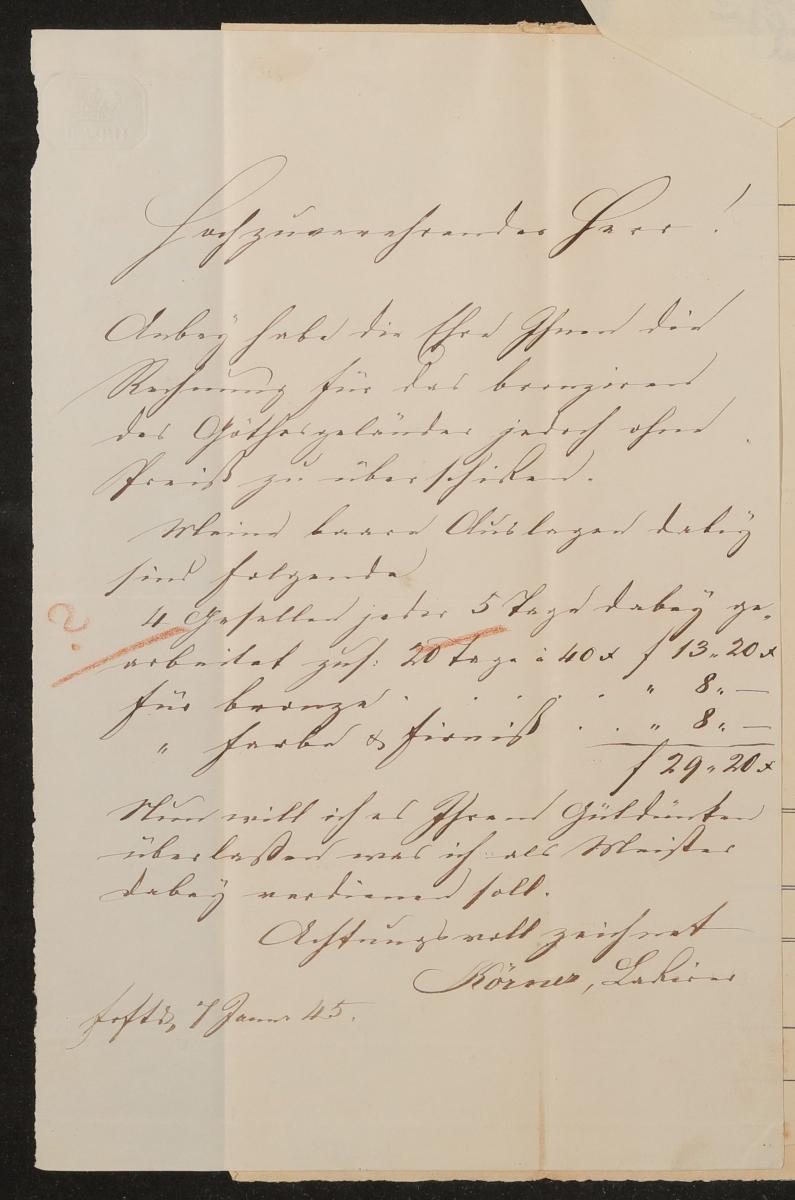 Hochzuverehrender Herr!
Anbey habe die Ehre Ihnen die
Rechnung für das bronziren
des Göthesgeländer jedoch ohne
Preiß zu überschiken.
Meine baare Auslagen dabey
sind folgende
4 Gesellen jeder 5 Tage dabey ge„
arbeitet zus: 20 Tage à 40 x f 13 „ 20 x
für bronze . . . . . " 8 „ —
" Farbe & Firniß . . " 8 „ —
f 29 „ 20 x
Nun will ich es Ihrem Gütdünken
überlaßen was ich als Meister
dabey verdienen soll.
Achtungsvoll zeichnet
Körner, Lakirer
Frftd, 7 Janr 45.
?